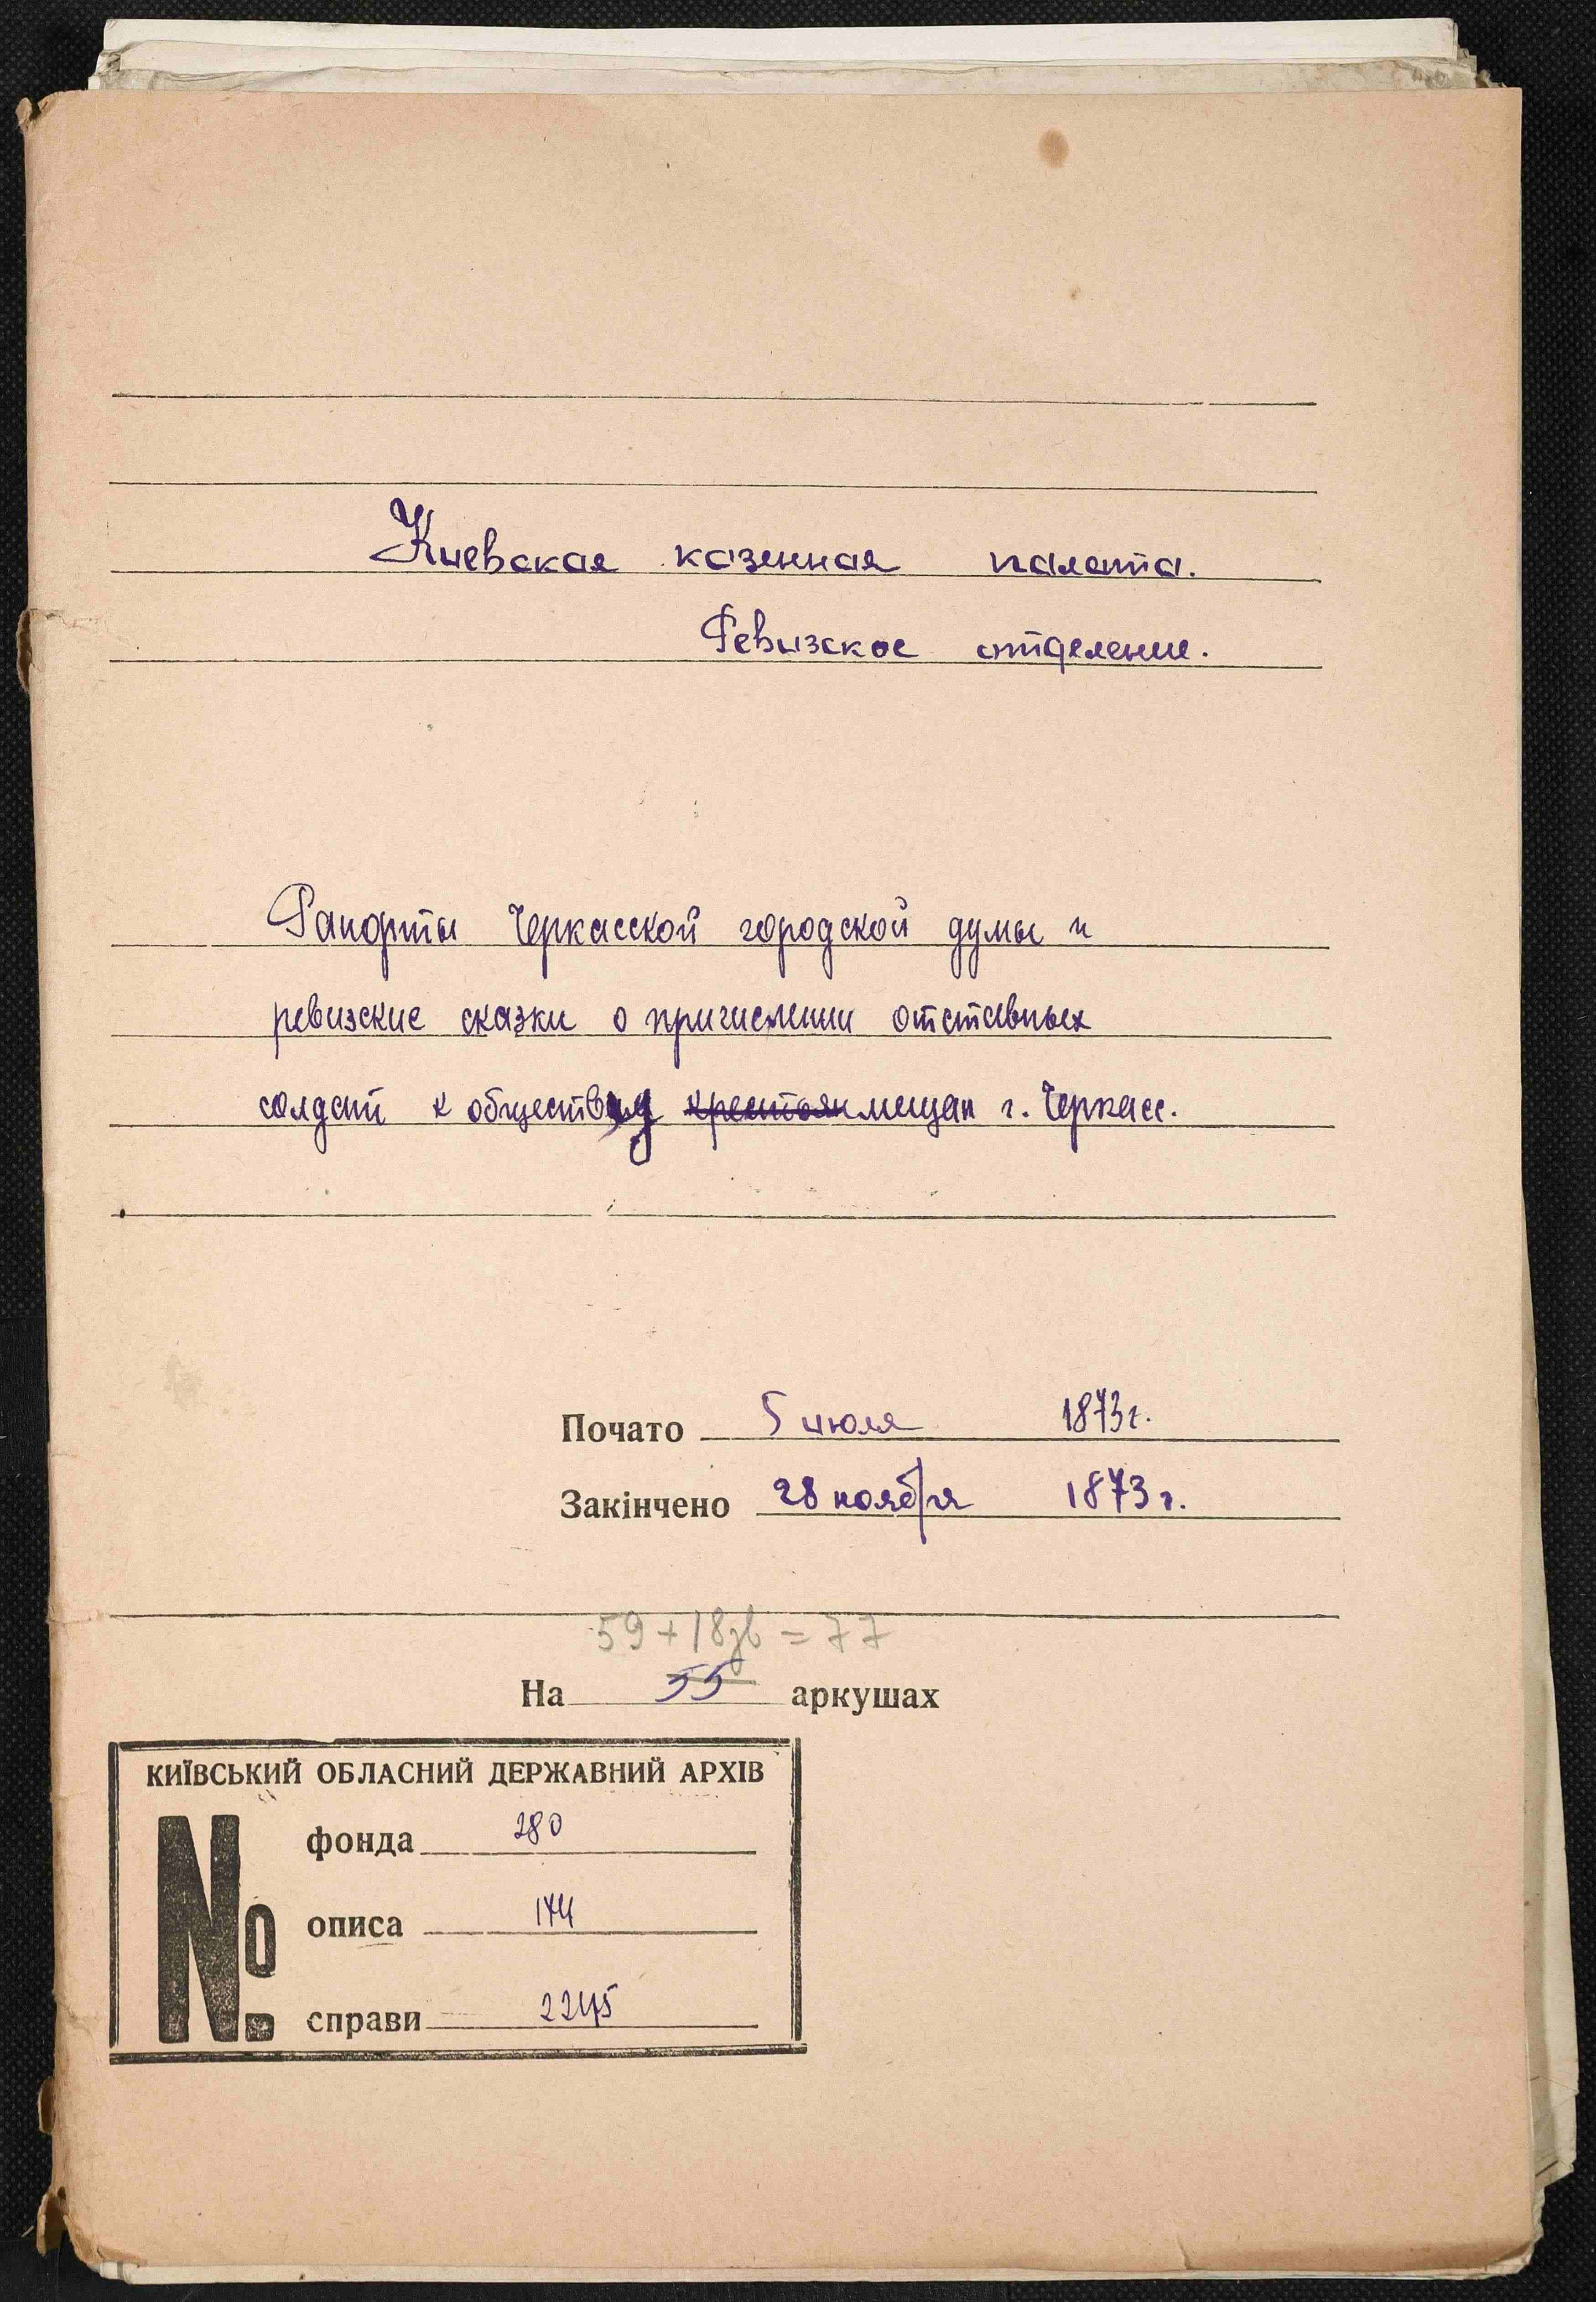 Киевская казенная палата.
Ревизское отделение.
Рапорты Черкасской городской думы и
ревизские сказки о причислении отставных
солдат к обществу крестьян мещан г. Черкасс.
Почато 5 июля 1873 г.
Закінчено 28 ноября 1873 г.
59 + 18зв = 77
На 55 аркушах
КИЇВСЬКИЙ ОБЛАСНИЙ ДЕРЖАВНИЙ АРХІВ
№
фонда 280
описа 174
справи 2245